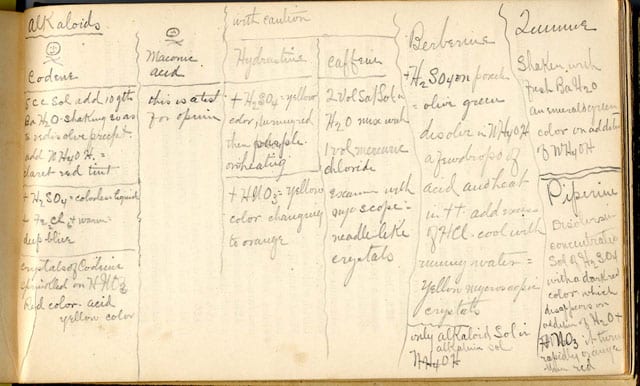 Alkaloids
Codeine
5 c.c. Sol add 10 gtts
Ba H2O shaking so as
to redissolve precept.
add NH4OH =
claret red tint
+ H2SO4 = colorless liquid
+ Fe2Cl6 + warm =
deep blue
crystals of Codeine
sprinkled on NHO3
Red color. acid
yellow color
Meconic
acid
this is a test
for opium
with caution
Hydrastine
+ H2SO4 = yellow
color,
then purple
on heating
+ HNO3 = yellow
color changing
to orange
caffein
2 Vol Sat Sol in
H2O mix with
1 vol mercuric
chloride
exam with
myscope =
needle-like
crystals
Berberine
+ H2SO4 on porc
= olive green
disolv in NH4OH
a few drops of
acid and heat
in tt add excess
of HCl. cool with
running water =
Yellow myscroscopic
crystals
only alkaloid Sol in
alkaline sol
NH4OH
Quinine
Shaken with
fresh Ba H2O
an emerald green
color on addition
of NH4OH
Piperine
Disolves in
concentrated
Sol of H2SO4
with a dark red
color which
disappears on
addition of H2O +
HNO3 it turns
rapidly orange
then red